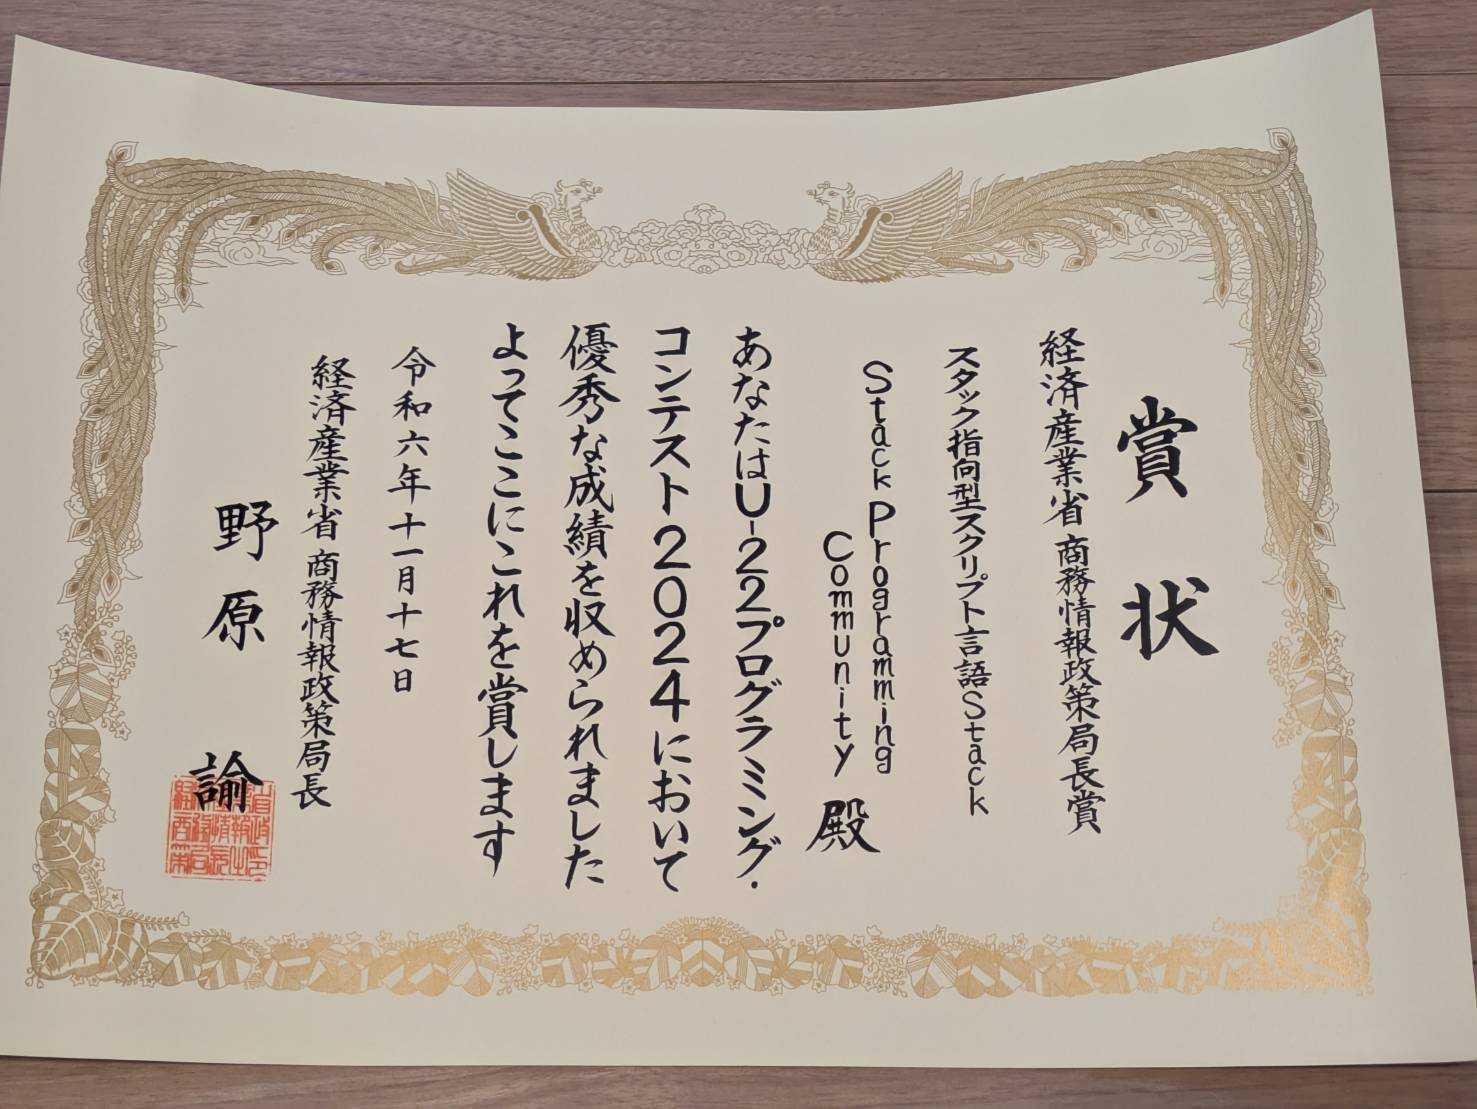 賞状
経済産業省 商務情報政策局長賞
スタック指向型スクリプト言語Stack
Stack Programming
Community 殿
あなたはU-22プログラミング・
コンテスト2024において
優秀な成績を収められました
よってここにこれを賞します
令和六年十一月十七日
経済産業省 商務情報政策局長
野原 諭